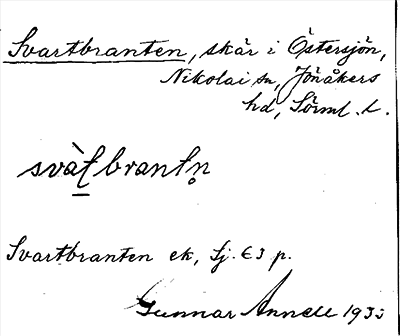 Svartbranten, skär i Östersjön,
Nikolai sn, Jönåkers
hd, Sörml. l.
Svartbranten ek, Sj. € 3 p.
Gunnar Annell